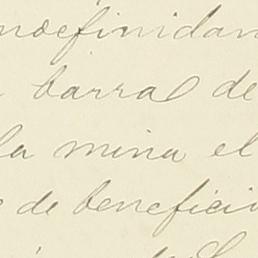 ndefinidam
barral de
la mina el
e de benefici